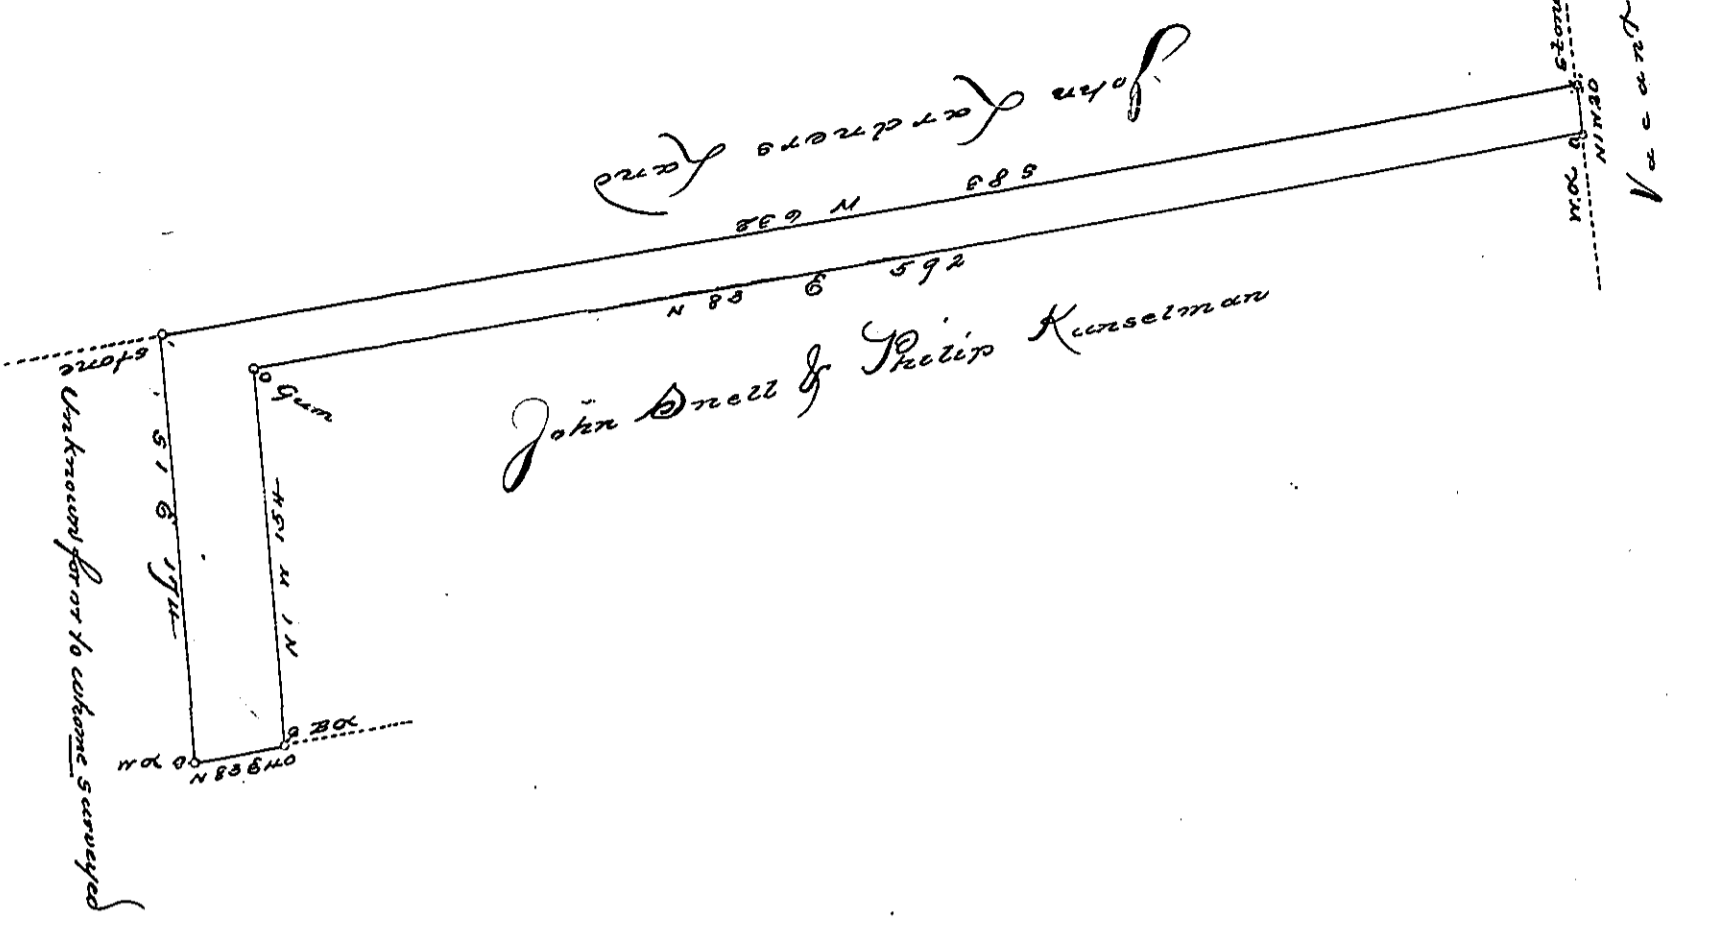 John Lardners Land
S 83 W 632
N 83 E 592
John Snell & Philip Kunselman
Vacant
N 1 W 20
W O
Stone
Stone
Gum
S 1 E 174
N 1 W 154
B O
W O
N 83 E 40
Unknown for or to whome surveyed